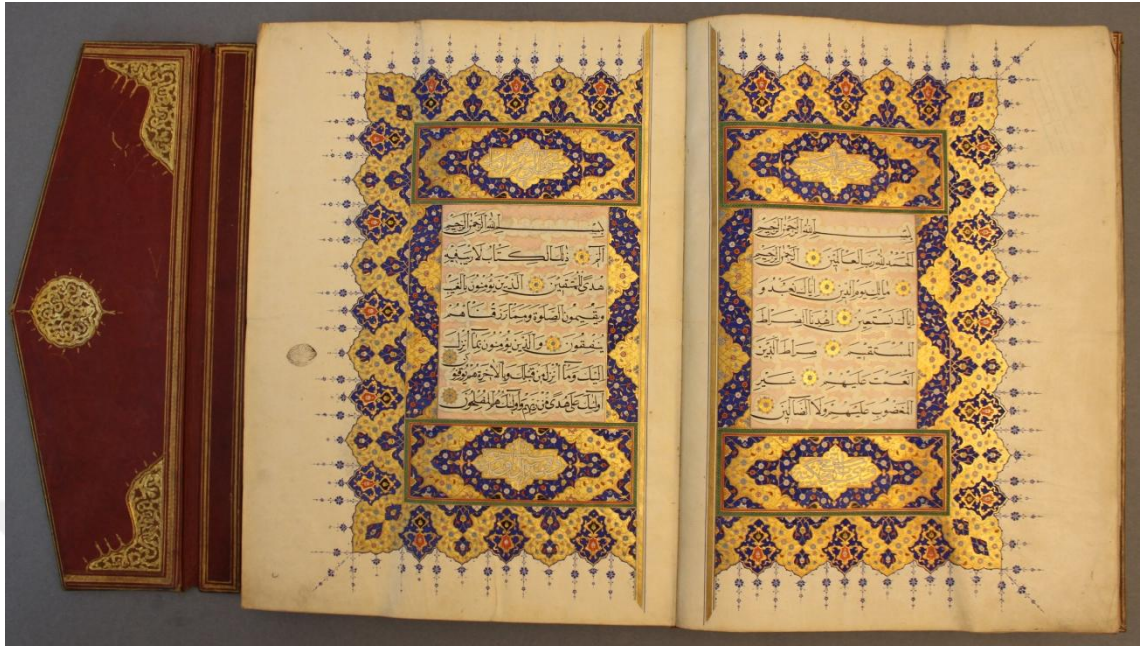 بِسْمِ اللهِ الرَّحْمٰنِ الرَّحِيمِ
اَلْحَمْدُ لِلهِ رَبِّ الْعَالَمِينَ الرَّحْمٰنِ الرَّحِيمِ
مَالِكِ يَوْمِ الدِّينِ اِيَّاكَ نَعْبُدُ وَ
اِيَّاكَ نَسْتَعِينُ اِهْدِنَا الصِّرَاطَ
الْمُسْتَقِيمَ صِرَاطَ الَّذِينَ
اَنْعَمْتَ عَلَيْهِمْ غَيْرِ
الْمَغْضُوبِ عَلَيْهِمْ وَلَا الضَّالِّينَ
بِسْمِ اللهِ الرَّحْمٰنِ الرَّحِيمِ
الٓمٓ ذٰلِكَ الْكِتَابُ لَا رَيْبَ فِيهِ
هُدًى لِلْمُتَّقِينَ اَلَّذِينَ يُؤْمِنُونَ بِالْغَيْبِ
وَيُقِيمُونَ الصَّلٰوةَ وَمِمَّا رَزَقْنَاهُمْ
يُنْفِقُونَ وَالَّذِينَ يُؤْمِنُونَ بِمَا اُنْزِلَ
اِلَيْكَ وَمَا اُنْزِلَ مِنْ قَبْلِكَ وَبِالْاٰخِرَةِ هُمْ يُوقِنُونَ
اُولٰئِكَ عَلٰى هُدًى مِنْ رَبِّهِمْ وَاُولٰئِكَ هُمُ الْمُفْلِحُونَ